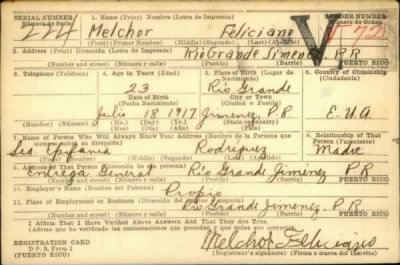 SERIAL NUMBER 1. Name (Print) Nombre (Letra de Imprenta) ORDER NUMBER
Número de Serie Número de Orden
224 Melchor Feliciano V 572
(First) (Primer Nombre) (Middle) (Segundo) (Last) (Apellido)
2. Address (Print) Dirección (Letra de Imprenta)
Rio Grande Jimenez P.R
(Number and street) (Número y calle) (Pueblo) (Barrio) PUERTO RICO
3. Telephone (Teléfono) 4. Age in Years (Edad) 5. Place of Birth (Lugar de Nacimiento) 6. Country of Citizenship (Ciudadanía)
23 Rio Grande
Date of Birth City or Town
(Fecha Nacimiento) (Ciudad o Pueblo)
Julio 18 1917 Jimenez, P.R. E.U.A.
(Mo.) (Mes) (Day) (Día) (Yr.) (Año) (State or country) (Estado o país)
7. Name of Person Who Will Always Know Your Address (Nombre de la Persona que siempre sabrá su dirección) 8. Relationship of That Person (Parentesco)
Rodriguez Madre
(First) (Primer Nombre) (Middle) (Segundo) (Last) (Apellido)
9. Address of That Person (Dirección de esa persona)
Entrega General Rio Grande Jimenez P.R
(Number and street) (Número y calle) (Pueblo) (Barrio) PUERTO RICO
10. Employer's Name (Nombre del Patrono)
Propio
11. Place of Employment or Business (Dirección del empleo o negocio)
Rio Grande Jimenez, P.R.
(Number and street) (Número y calle) (Pueblo) (Barrio) PUERTO RICO
I Affirm That I Have Verified Above Answers and That They Are True.
Afirmo que he verificado las contestaciones que preceden y que todas son ciertas.
REGISTRATION CARD
D. S. S. Form 1
Melchor Feliciano
(Registrant's signature) (Firma o marca del inscrito)